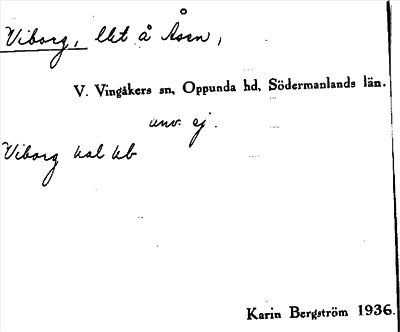 Viborg, lht å Åsen,
V. Vingåkers sn, Oppunda hd, Södermanlands län.
anv. ej.
Viborg kal kb
Karin Bergström 1936.